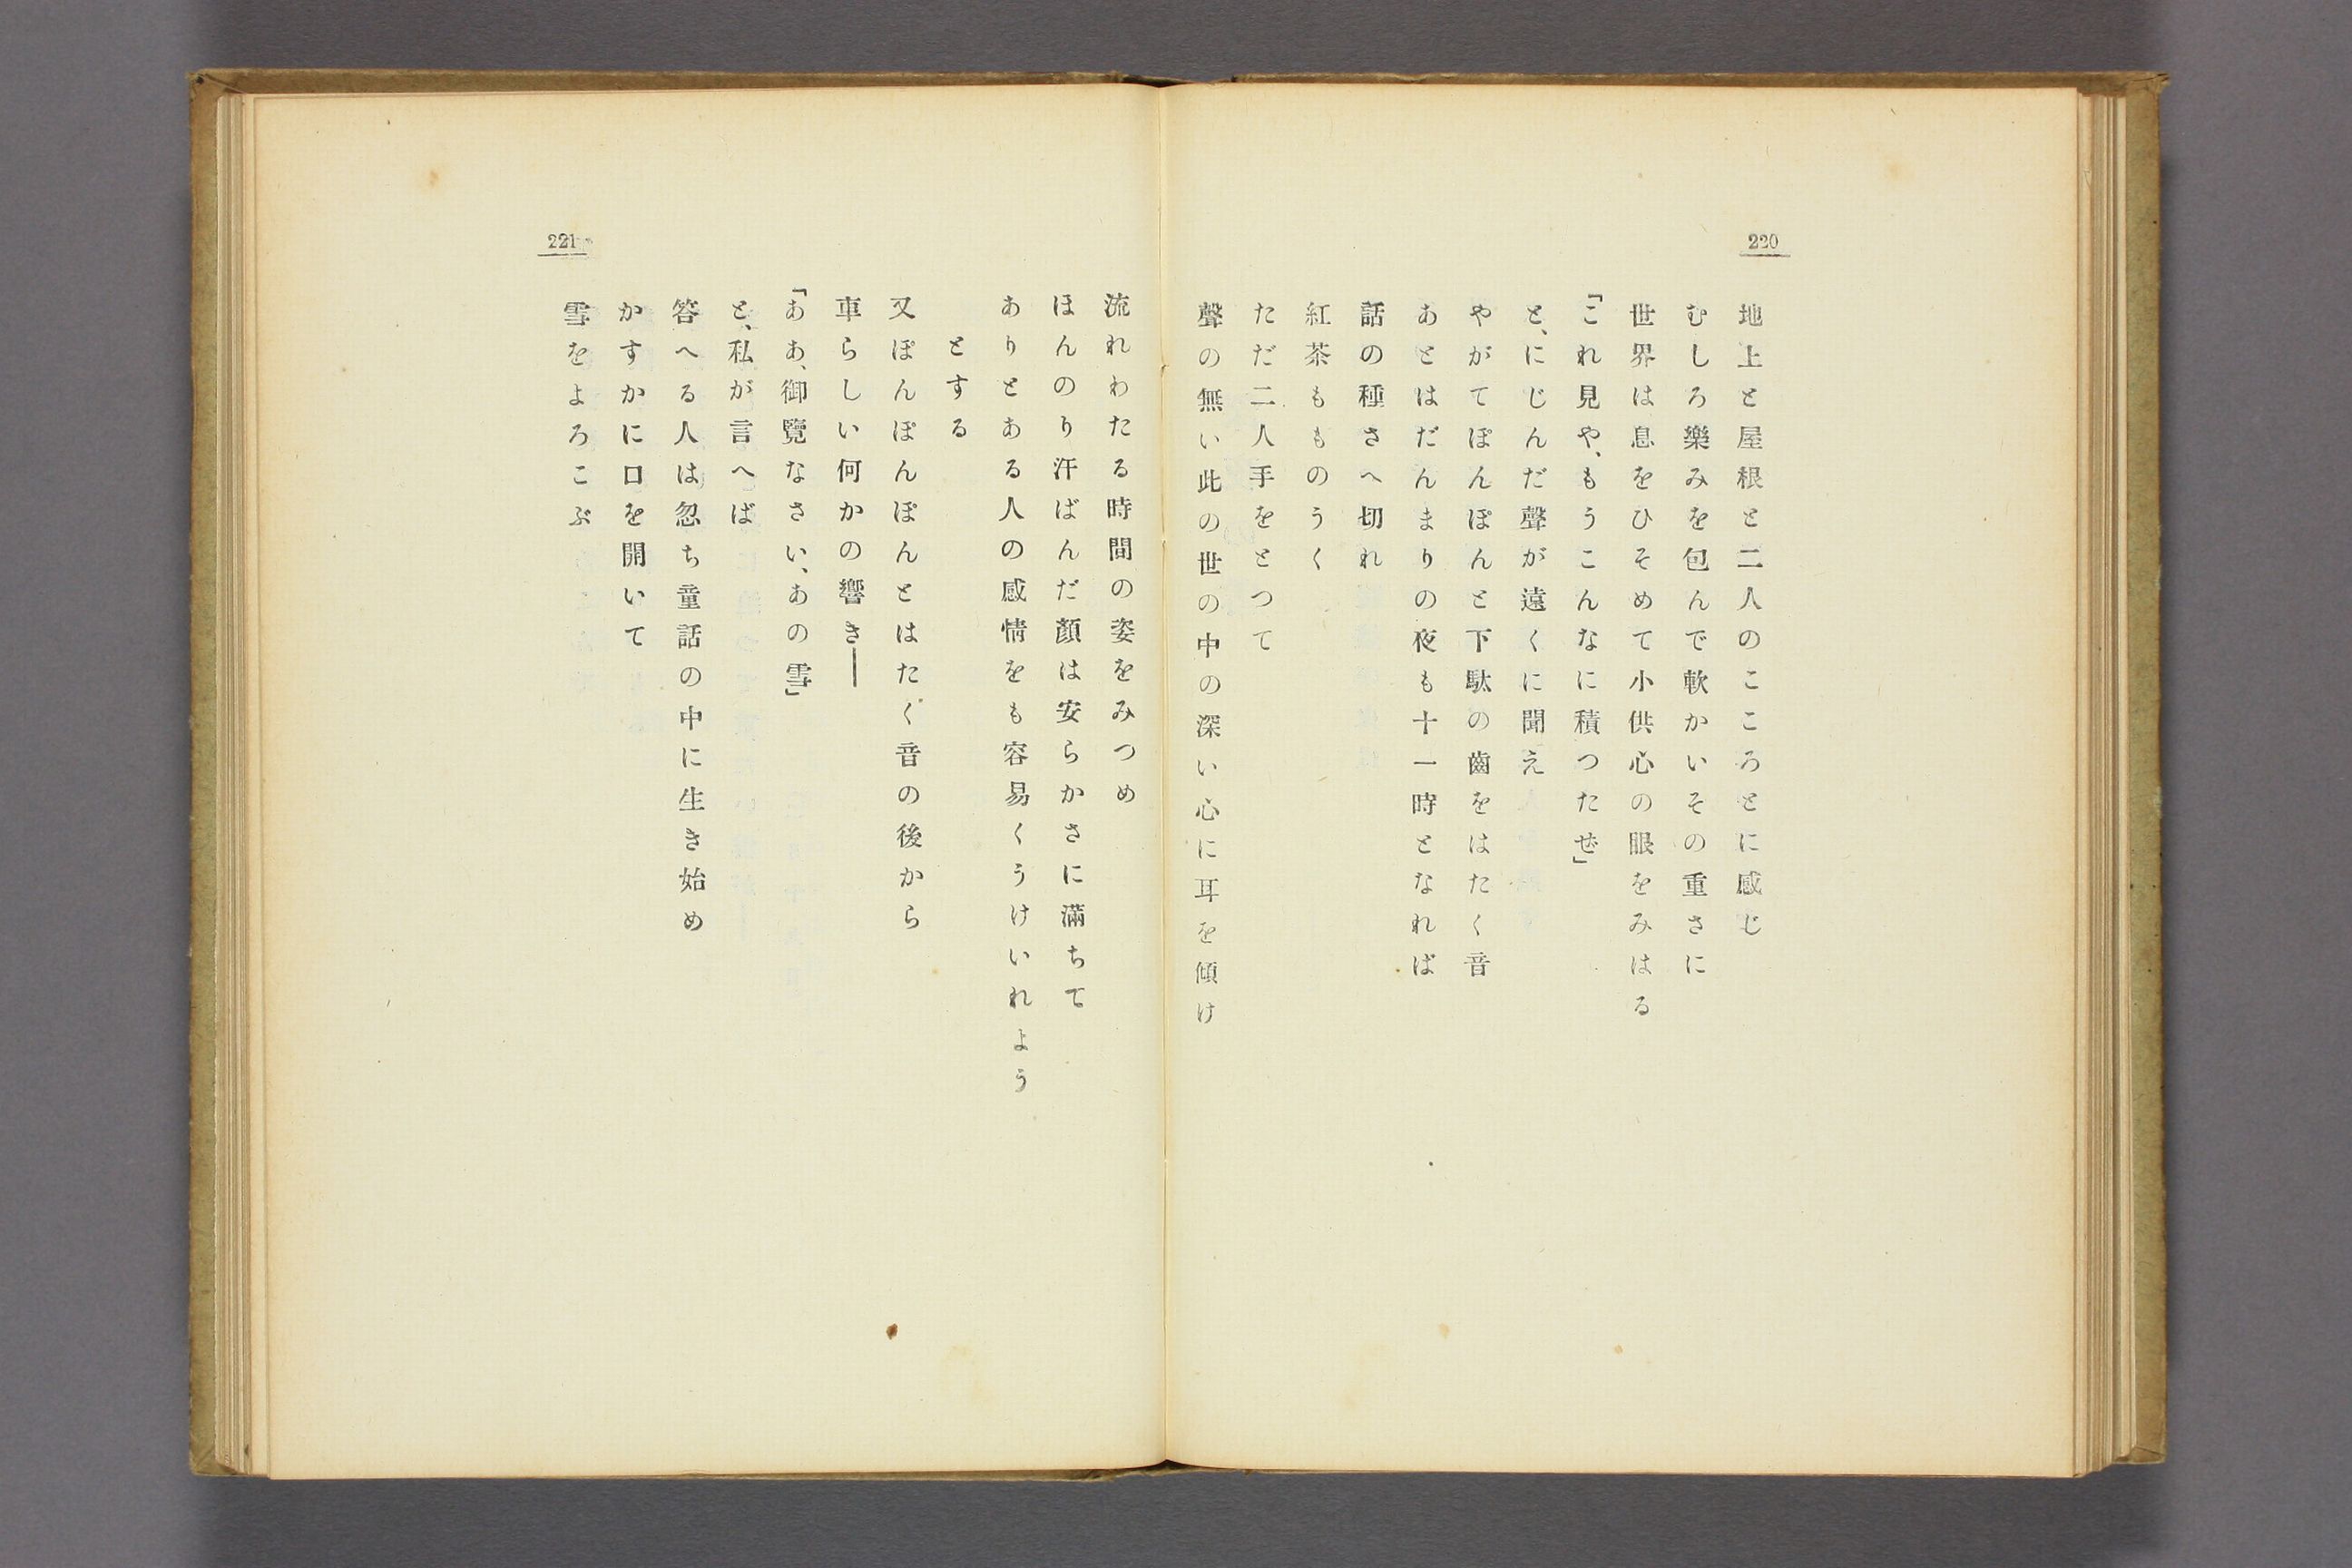 220
地上と屋根と二人のこころとに感じ
むしろ樂みを包んで軟かいその重さに
世界は息をひそめて小供心の眼をみはる
「これ見や、もうこんなに積つたぜ」
と、にじんだ聲が遠くに聞え
やがてぽんぽんと下駄の齒をはたく音
あとはだんまりの夜も十一時となれば
話の種さへ切れ
紅茶もものうく
ただ二人手をとつて
聲の無い此の世の中の深い心に耳を傾け
流れわたる時間の姿をみつめ
ほんのり汗ばんだ顏は安らかさに滿ちて
ありとある人の感情をも容易くうけいれよう
とする
又ぽんぽんぽんとはたく音の後から
車らしい何かの響き――
「ああ、御覽なさい、あの雪」
と、私が言へば
答へる人は忽ち童話の中に生き始め
かすかに口を開いて
雪をよろこぶ
221